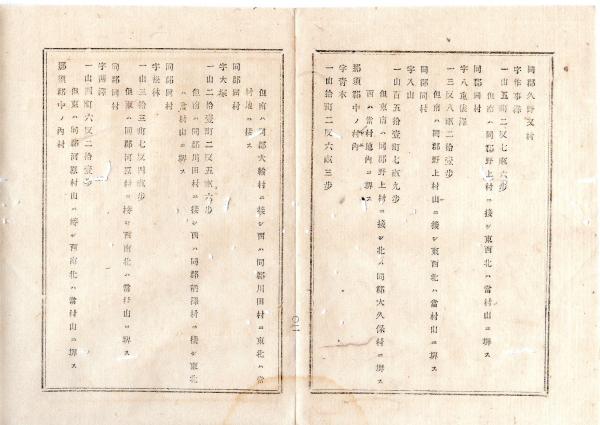 同郡久野又村
字作事澤
一山五町二反七畝六歩
但南ハ同郡野上村ニ接シ東西北ハ當村山ニ堺ス
同郡同村
字八重俵澤
一三反八畝二拾壹歩
但南ハ同郡野上村山ニ接シ東西北ハ當村山ニ堺ス
同郡同村
字入山
一山百五拾壹町七畝九歩
但東南ハ同郡野上村ニ接シ北ハ同郡大久保村ニ堺ス
西ハ當村地內ニ堺ス
那須郡中ノ內村
字青木
一山拾町二反六畝三歩
〇二
但南ハ同郡大輪村ニ接シ西ハ同郡川田村ニ東北ハ當
村地ニ接ス
同郡同村
字大塚
一山二拾壹町二反五畝六歩
但南ハ同郡川田村ニ接シ西ハ同郡澤村ニ接シ東北
ハ當村山ニ堺ス
同郡同村
字松林
一山三拾三町七反四畝歩
但東ハ同郡河原村ニ接シ西南北ハ當村山ニ堺ス
同郡同村
字西澤
一山四町六反二拾壹歩
但東ハ同郡河原村山ニ接シ西南北ハ當村山ニ堺ス
那須郡中ノ內村